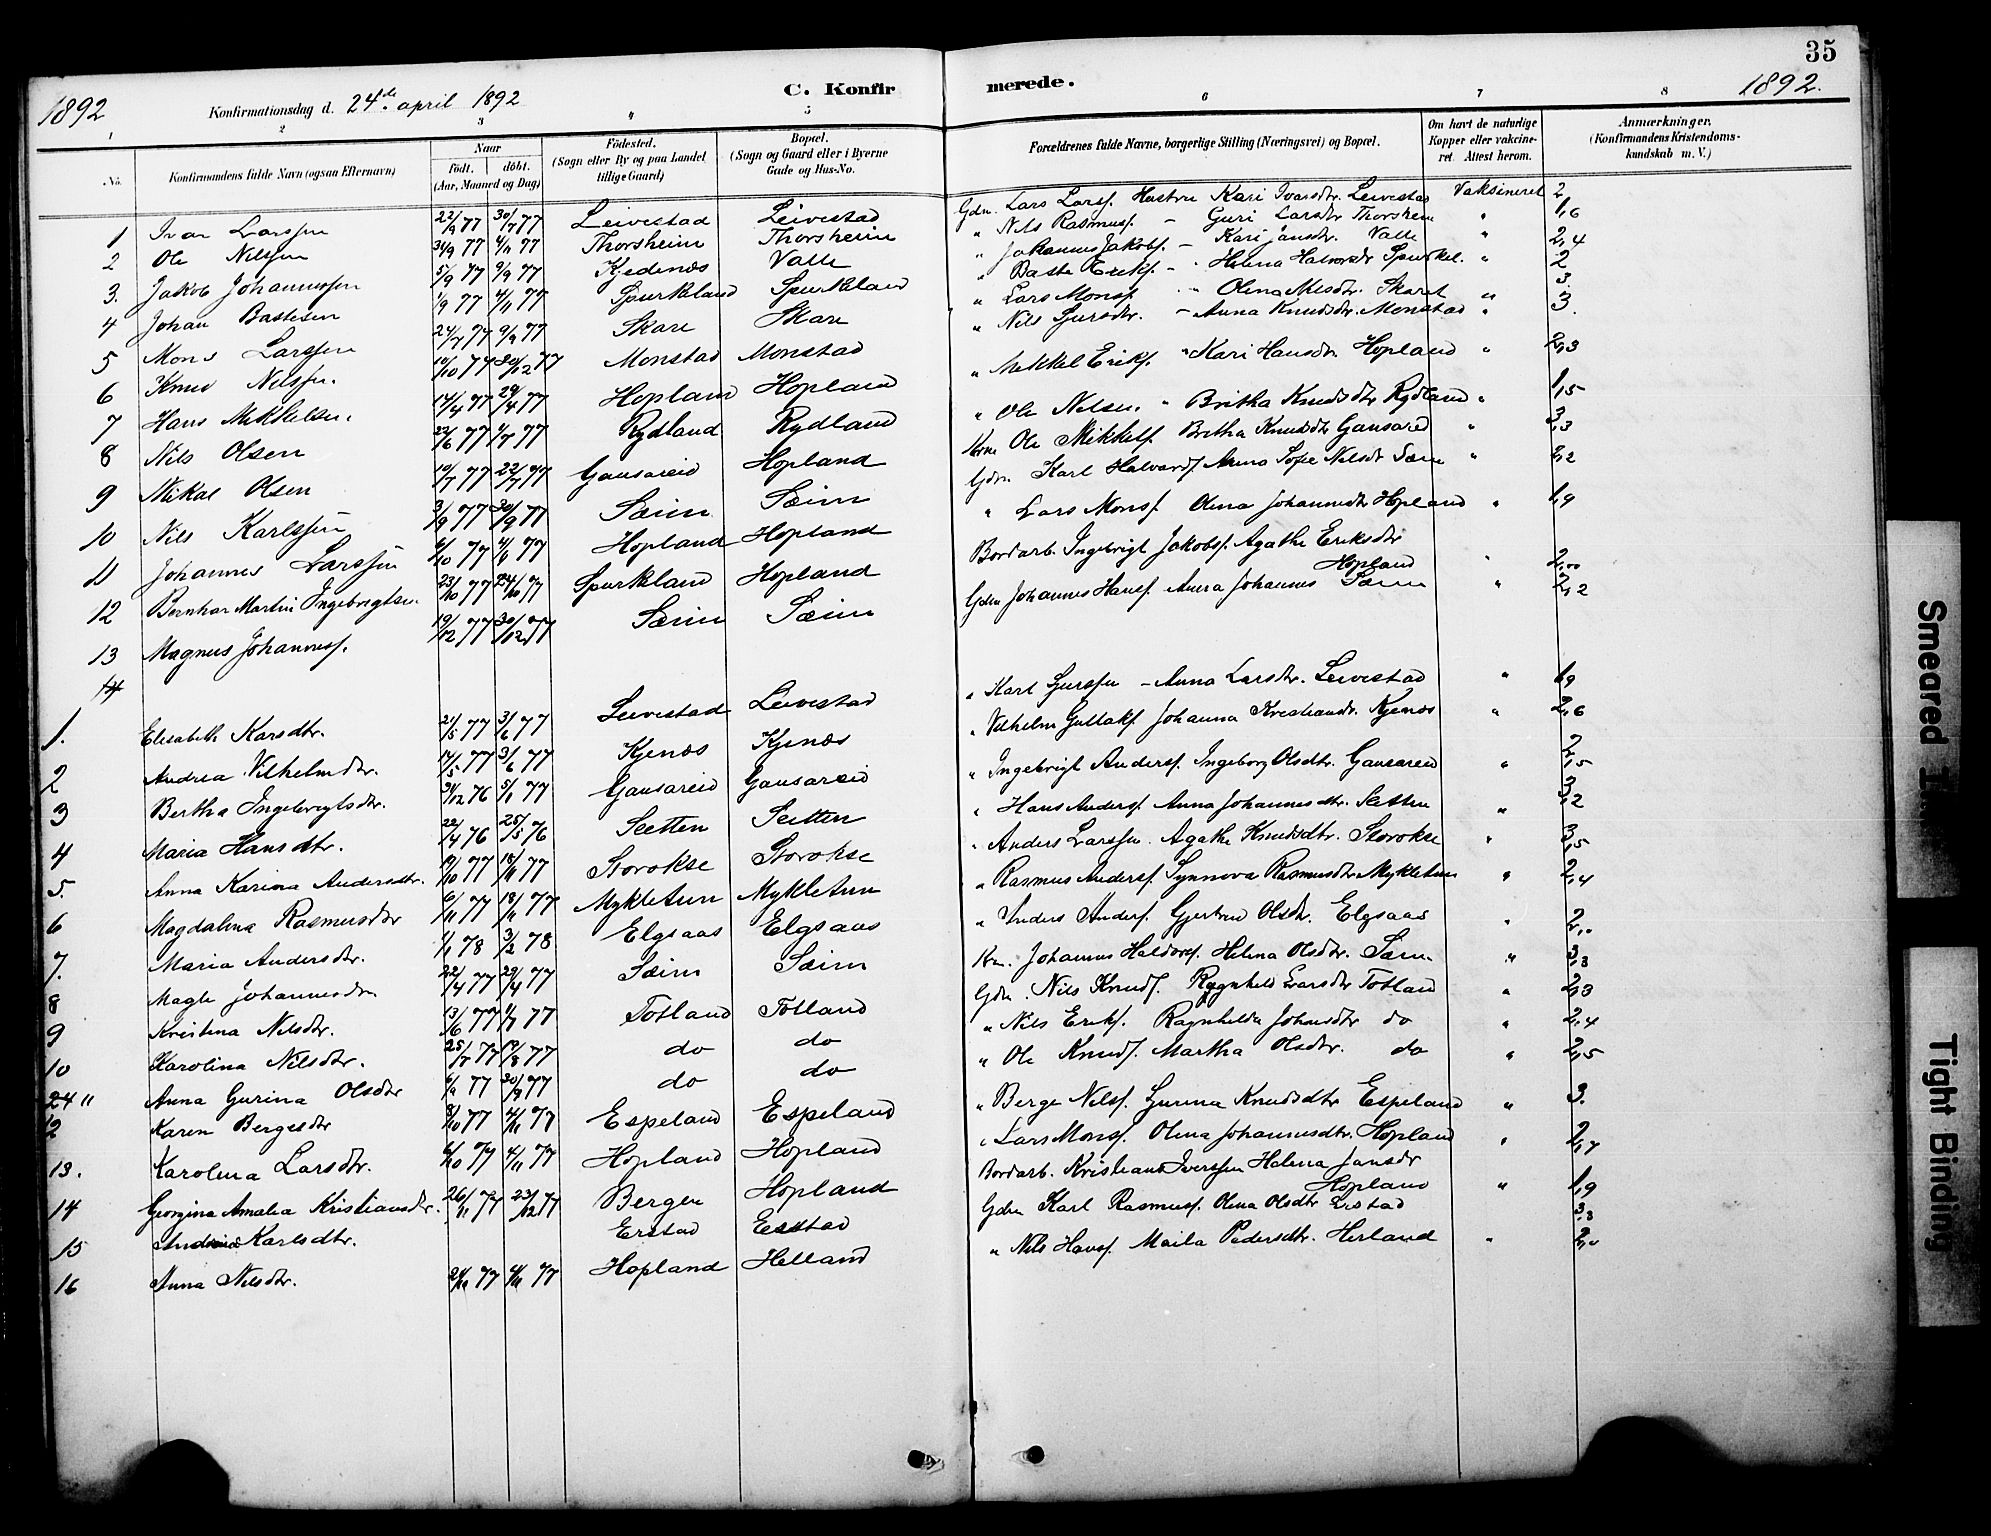 35
1892 Konfirmationsdag d. 24de april 1892 C. Konfir merede. 1892.
1 2 3 4 5 6 7 8
No. Konfirmandens fulde Navn (ogsaa Efternavn) Naar födt. döbt. (Aar, Maaned og Dag) Födested. (Sogn eller By og paa Landet tillige Gaard) Bopæl. (Sogn og Gaard eller i Byerne Gade og Hus-No. Forældrenes fulde Navne, borgerlige Stilling (Næringsvei) og Bopæl. Om havt de naturlige Kopper eller vakcineret. Attest herom. Anmærkninger. (Konfirmandens Kristendomskundskab m. V.)
1 Ivar Larssen 22/9 77 30/7 77 Leivestad Leivestad Gdm. Lars Larss. Hustru Kari Ivarsdtr. Leivestad Vaksineret 2
2 Ole Nilssen 77 4/11 77 Thorsheim Thorsheim " Nils Rasmuss. - Guri Larsdtr Thorsheim " 1,6
3. Jakob Johannessen 5/9 77 9/9 77 Kjedenæs Valle " Johannes Jakobs. - Kari Jansdtr. Valle " 2,4
4 Johan Bastesen 1/9 77 4/11 77 Spurkland Spurkland " Baste Eriks. - Helena Halvorsdr Spurkel. " 2
5 Mons Larssen 24/7 77 9/9 77 Skare Skare " Lars Monss. " Olina Nilsdtr. Skaret " 3.
6 Knud Nilssen. 10/10 77 30/12 77 Monstad Monstad " Nils Sjursdtr. - Anna Knudsdtr. Monstad " 3.
7 Hans Mikkelsen. 17/4 77 29/4 77 Hopland Hopland " Mikkel Eriks. " Kari Hansdtr. Hopland " 2,3
8 Nils Olsen 23/6 77 1/7 77 Rydland Rydland " Ole Nilsen. " Britha Knudsdtr Rydland " 1,5
9 Mikal Olsen 10/7 77 22/7 77 Gausareid Hopland Ole Mikkels. Britha Knudsdtr Gausareid " 3,3
10 Nils Karlssen 3/9 77 30/9 77 Sæim Sæim Gdm. Karl Halvards. Anna Sofie Nilsdt Sæm " 2,2
11 Johannes Larssen 6/10 77 77 Hopland Hopland " Lars Monss. Olina Johannesdtr Hopland " 1,9
12 Bernhar Martin Ingebregtsen. 23/10 77 24/10 77 Spurkland Hopland Bordarb. Ingebrigt Jakobs. Agathe Eriksdtr Hopland " 2,00
13 Magnus Johanness. 19/12 77 30/12 77 Sæim Sæim Gdm Johannes Hanss. Anna Johannes Sæim " 2,2
14
1. Elisabeth Karsdtr. 21/5 77 3/6 77 Leivestad Leivestad " Karl Sjurssen - Anna Larsdtr. Leivestad " 1,9
2 Andrea Vilhelmsdtr. 17/5 77 3/6 77 Kjenæs Kjenæs " Vilhelm Gullaks. Johanna Kristiansdr. Kjenæs " 2,6
3 Bertha Ingebregtsdtr. 31/12 76 5/1 77 Gausareid Gausareid " Ingebrigt Anderss. Ingeborg Olsdtr. Gausareid " 2,5
4 Maria Hansdtr. 22/4 76 25/5 76 Seetten Seetten " Hans Anderss. Anna Johannesdtr. Seetten " 3,2
5. Anna Karina Andersdtr. 19/10 77 18/11 77 Storokse Storokse " Anders Larssen. Agathe Knudsdtr. Storokse " 3,5
6 Magdalena Rasmusdtr 6/11 77 18/11 77 Mykletun Mykletun " Rasmus Anderss. Synnova Rasmusdtr Mykletun " 2,4
7. Maria Andersdtr. 1/1 78 3/2 78 Elgsaas Elgsaas " Anders Anderss. Gjertrud Olsdtr. Elgsaas " 2,0
8 Magli Johannesdtr 22/4 77 29/4 77 Sæim Sæim Johannes Haldorss. Helena Olsdtr. Sæm. " 3,3
9 Kristina Nilsdtr. 13/6 77 1/7 77 Totland Totland Gdm. Nils Knuds. Ragnhild Larsdtr Totland " 2,3
10 Karolina Nilsdtr. 25/7 77 19/8 77 do do " Nils Eriks. Ragnhilda Johansdtr do " 2,4
24 " Anna Gurina Olsdtr 6/9 77 30/9 77 do do " Ole Knuds. Martha Olsdtr. do " 2,5
12 Karen Bergesdtr 8/10 77 4/11 77 Espeland Espeland " Berge Nilss. Gurina Knudsdtr Espeland " 3.
13. Karolina Larsdtr. 6/10 77 4/11 77 Hopland Hopland " Lars Monss. Olina Johannesdtr. Hopland " 2,7
14 Georgina Amalia Kristiansdtr. 26/11 77 23/12 77 Bergen Hopland Bordarb. Kristian Iverssen Helena Jansdr Hopland " 1,9
15 Karlsdtr. Erstad Erstad Gdm Karl Rasmuss. Olina Olsdtr Erstad 3,3
16 Anna Nilsdtr. 77 4/11 77 Hopland Helland " Nils Hanss. Maila Pedersdtr. Herland " 2,0
Smeared
Tight Binding